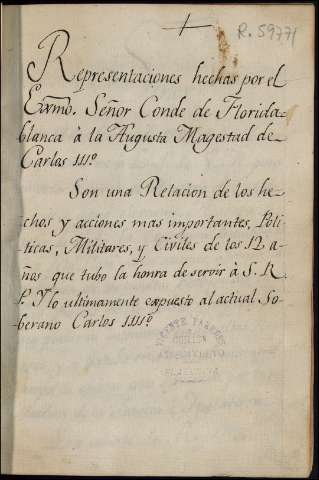 R. 59771
Representaciones hechas por el
Exmo. Señor Conde de Florida-
blanca à la Augusta Magestad de
Carlos III.º
Son una Relacion de los he-
chos y acciones mas importantes, Poli-
ticas, Militares, y Civiles de los 12 a-
ños que tubo la honra de servir à S. R.
P. Y lo ultimamente expuesto al actual So-
berano Carlos IIII.º
VICENTE